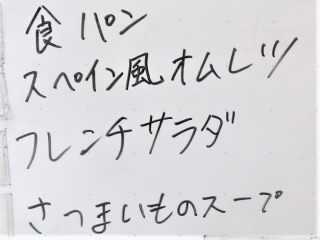 食パン
スペイン風オムレツ
フレンチサラダ
さつまいものスープ